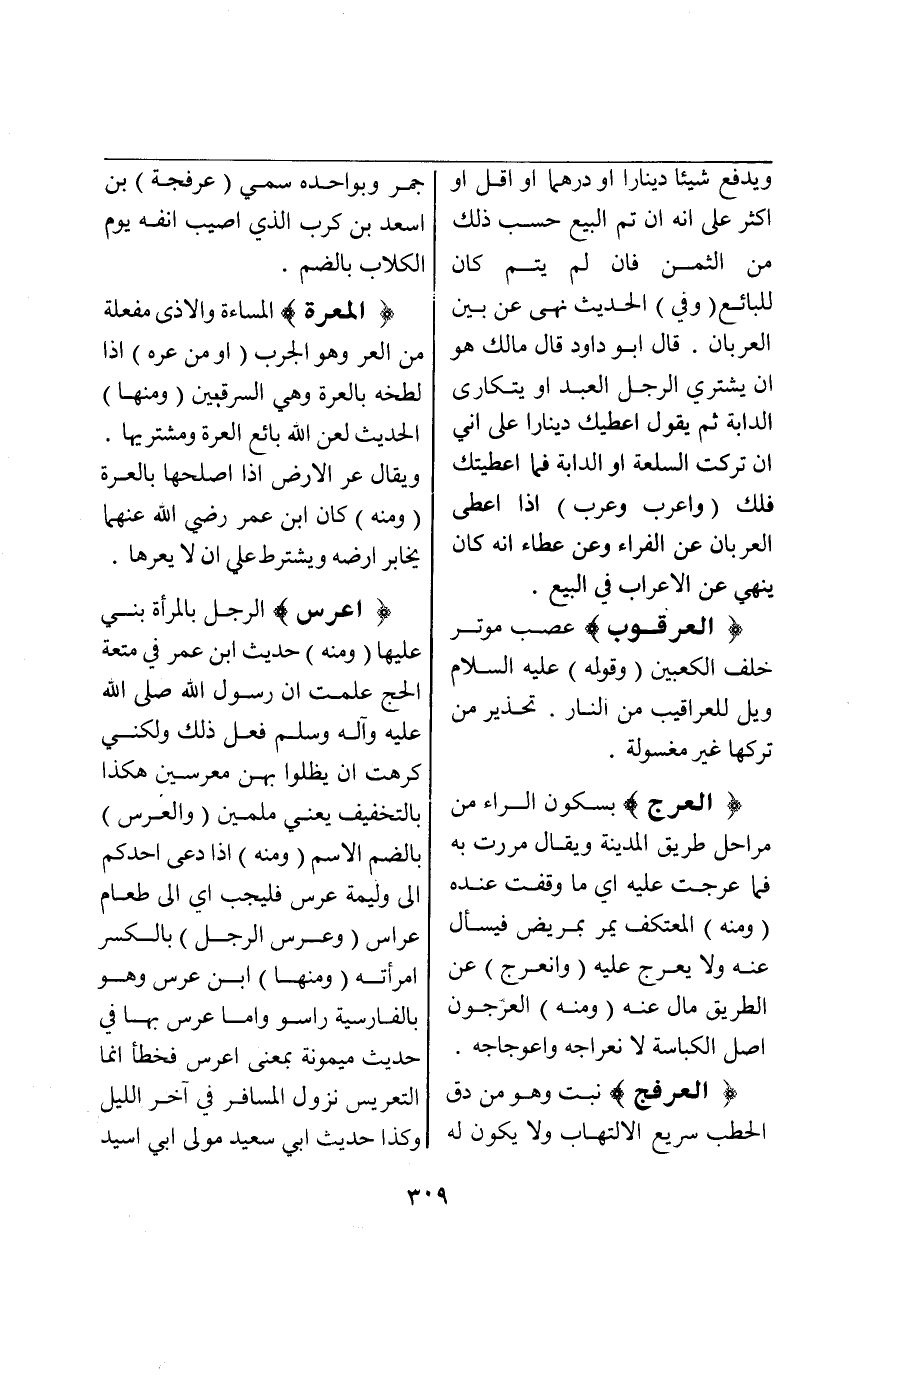 ويدفع شيئا دينارا او درهما او اقل او
اكثر على انه ان تم البيع حسب ذلك
من الثمن فان لم يتم كان
للبائع ( وفي ) الحديث نهى عن بين
العربان . قال ابو داود قال مالك هو
ان يشتري الرجل العبد او يتكارى
الدابة ثم يقول اعطيك دينارا على اني
ان تركت السلعة او الدابة فما اعطيتك
فلك ( واعرب وعرب ) اذا اعطى
العربان عن الفراء وعن عطاء انه كان
ينهي عن الاعراب في البيع .
﴿ العرقوب ﴾ عصب موتر
خلف الكعبين ( وقوله ) عليه السلام
ويل للعراقيب من النار . تحذير من
تركها غير مغسولة .
﴿ العرج ﴾ بسكون الراء من
مراحل طريق المدينة ويقال مررت به
فما عرجت عليه اي ما وقفت عنده
( ومنه ) المعتكف يمر بمريض فيسأل
عنه ولا يعرج عليه ( وانعرج ) عن
الطريق مال عنه ( ومنه ) العرجون
اصل الكباسة لا نعراجه واعوجاجه .
﴿ العرفج ﴾ نبت وهو من دق
الحطب سريع الالتهاب ولا يكون له
جمر وبواحده سمي ( عرفجة ) بن
اسعد بن كرب الذي اصيب انفه يوم
الكلاب بالضم .
﴿ المعرة ﴾ المساءة والاذى مفعلة
من العر وهو الجرب ( او من عره ) اذا
لطخه بالعرة وهي السرقين ( ومنها )
الحديث لعن الله بائع العرة ومشتريها .
ويقال عر الارض اذا اصلحها بالعرة
( ومنه ) كان ابن عمر رضي الله عنهما
يخابر ارضه ويشترط على ان لا يعرها .
﴿ اعرس ﴾ الرجل بالمرأة بنى
عليها ( ومنه ) حديث ابن عمر في متعة
الحج علمت ان رسول الله صلى الله
عليه وآله وسلم فعل ذلك ولكني
كرهت ان يظلوا بهن معرسين هكذا
بالتخفيف يعني ملمين ( والعرس )
بالضم الاسم ( ومنه ) اذا دعى احدكم
الى وليمة عرس فليجب اي الى طعام
عراس ( وعرس الرجل ) بالكسر
امرأته ( ومنها ) ابن عرس وهو
بالفارسية راسو واما عرس بها في
حديث ميمونة بمعنى اعرس فخطأ انما
التعريس نزول المسافر في آخر الليل
وكذا حديث ابي سعيد مولى ابي اسيد
٣٠٩